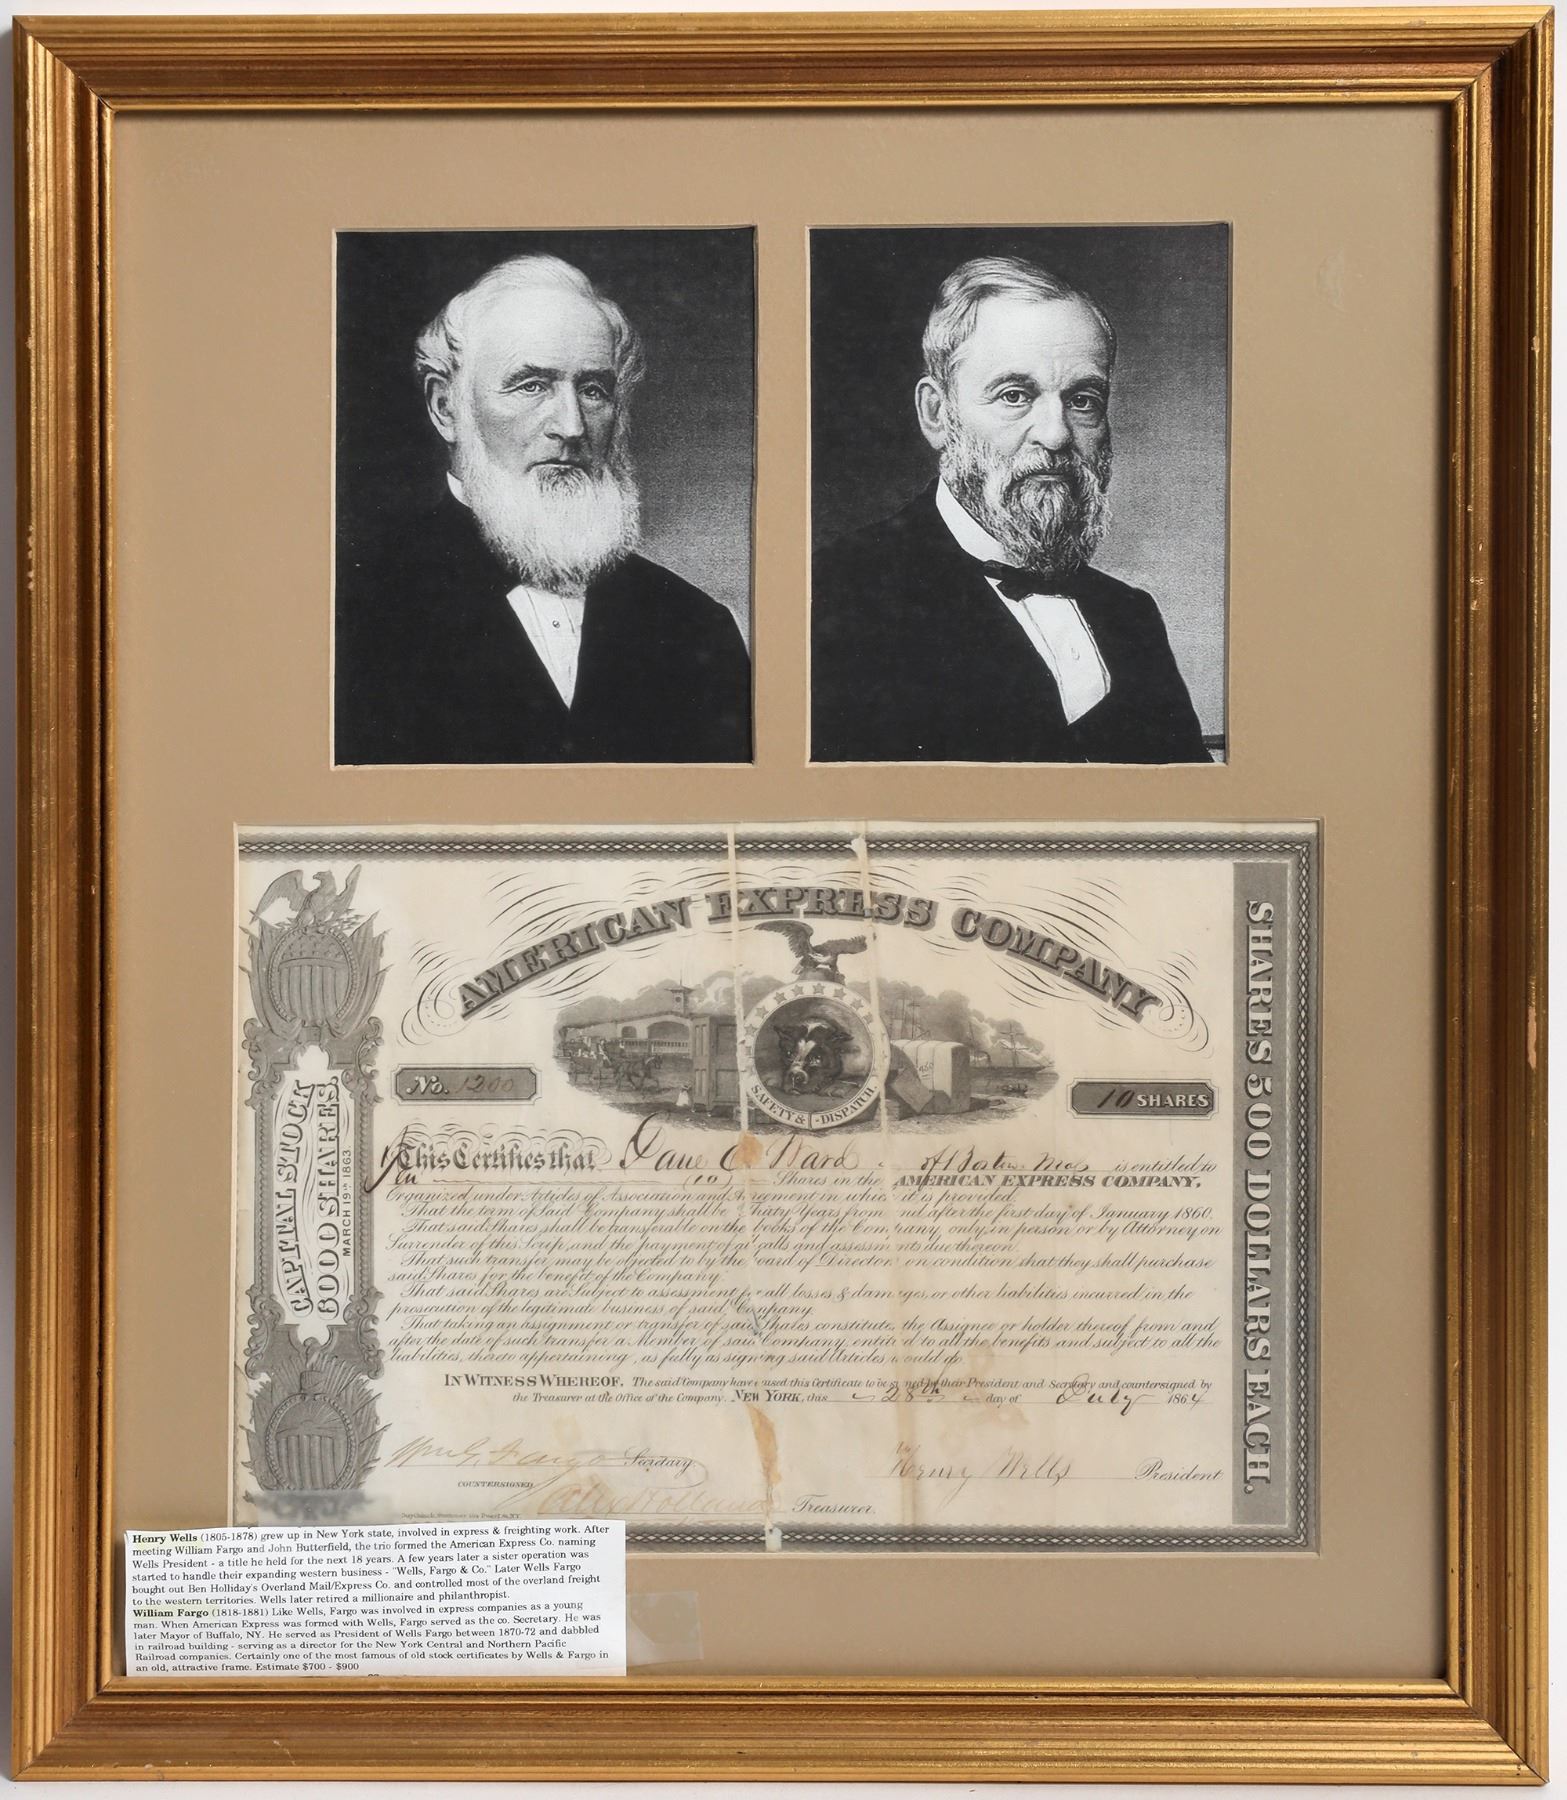 AMERICAN EXPRESS COMPANY
SAFETY & DISPATCH.
No. 1200
10 SHARES
CAPITAL STOCK
6000 SHARES
MARCH 19th 1863
SHARES 500 DOLLARS EACH.
This Certifies that Ward of Boston Mass is entitled to
Ten (10) Shares in the AMERICAN EXPRESS COMPANY,
Organized under Articles of Association and Agreement in which it is provided.
That the term of Said Company shall be Thirty Years from and after the first day of January 1860.
That said Shares shall be transferable on the books of the Company only in person or by Attorney on
Surrender of this Scrip, and the payment of all calls and assessments due thereon.
That such transfer may be objected to by the Board of Directors on condition that they shall purchase
said Shares for the benefit of the Company.
That said Shares are Subject to assessment for all losses & damages, or other liabilities incurred in the
prosecution of the legitimate business of said Company.
That taking an assignment or transfer of said Shares constitutes the Assignee or holder thereof from and
after the date of such transfer a Member of said Company, entitled to all the benefits and subject to all the
liabilities, thereto appertaining, as fully as signing said Articles would do.
IN WITNESS WHEREOF, The said Company have caused this Certificate to be signed by their President and Secretary and countersigned by
the Treasurer at the Office of the Company. NEW YORK, this 28th day of July 1864
Wm G. Fargo Secretary.
Henry Wells President
COUNTERSIGNED
Alex Holland Treasurer.
Henry Wells (1805-1878) grew up in New York state, involved in express & freighting work. After
meeting William Fargo and John Butterfield, the trio formed the American Express Co. naming
Wells President - a title he held for the next 18 years. A few years later a sister operation was
started to handle their expanding western business - "Wells, Fargo & Co." Later Wells Fargo
bought out Ben Holliday's Overland Mail/Express Co. and controlled most of the overland freight
to the western territories. Wells later retired a millionaire and philanthropist.
William Fargo (1818-1881) Like Wells, Fargo was involved in express companies as a young
man. When American Express was formed with Wells, Fargo served as the co. Secretary. He was
later Mayor of Buffalo, NY. He served as President of Wells Fargo between 1870-72 and dabbled
in railroad building - serving as a director for the New York Central and Northern Pacific
Railroad companies. Certainly one of the most famous of old stock certificates by Wells & Fargo in
an old, attractive frame. Estimate $700 - $900